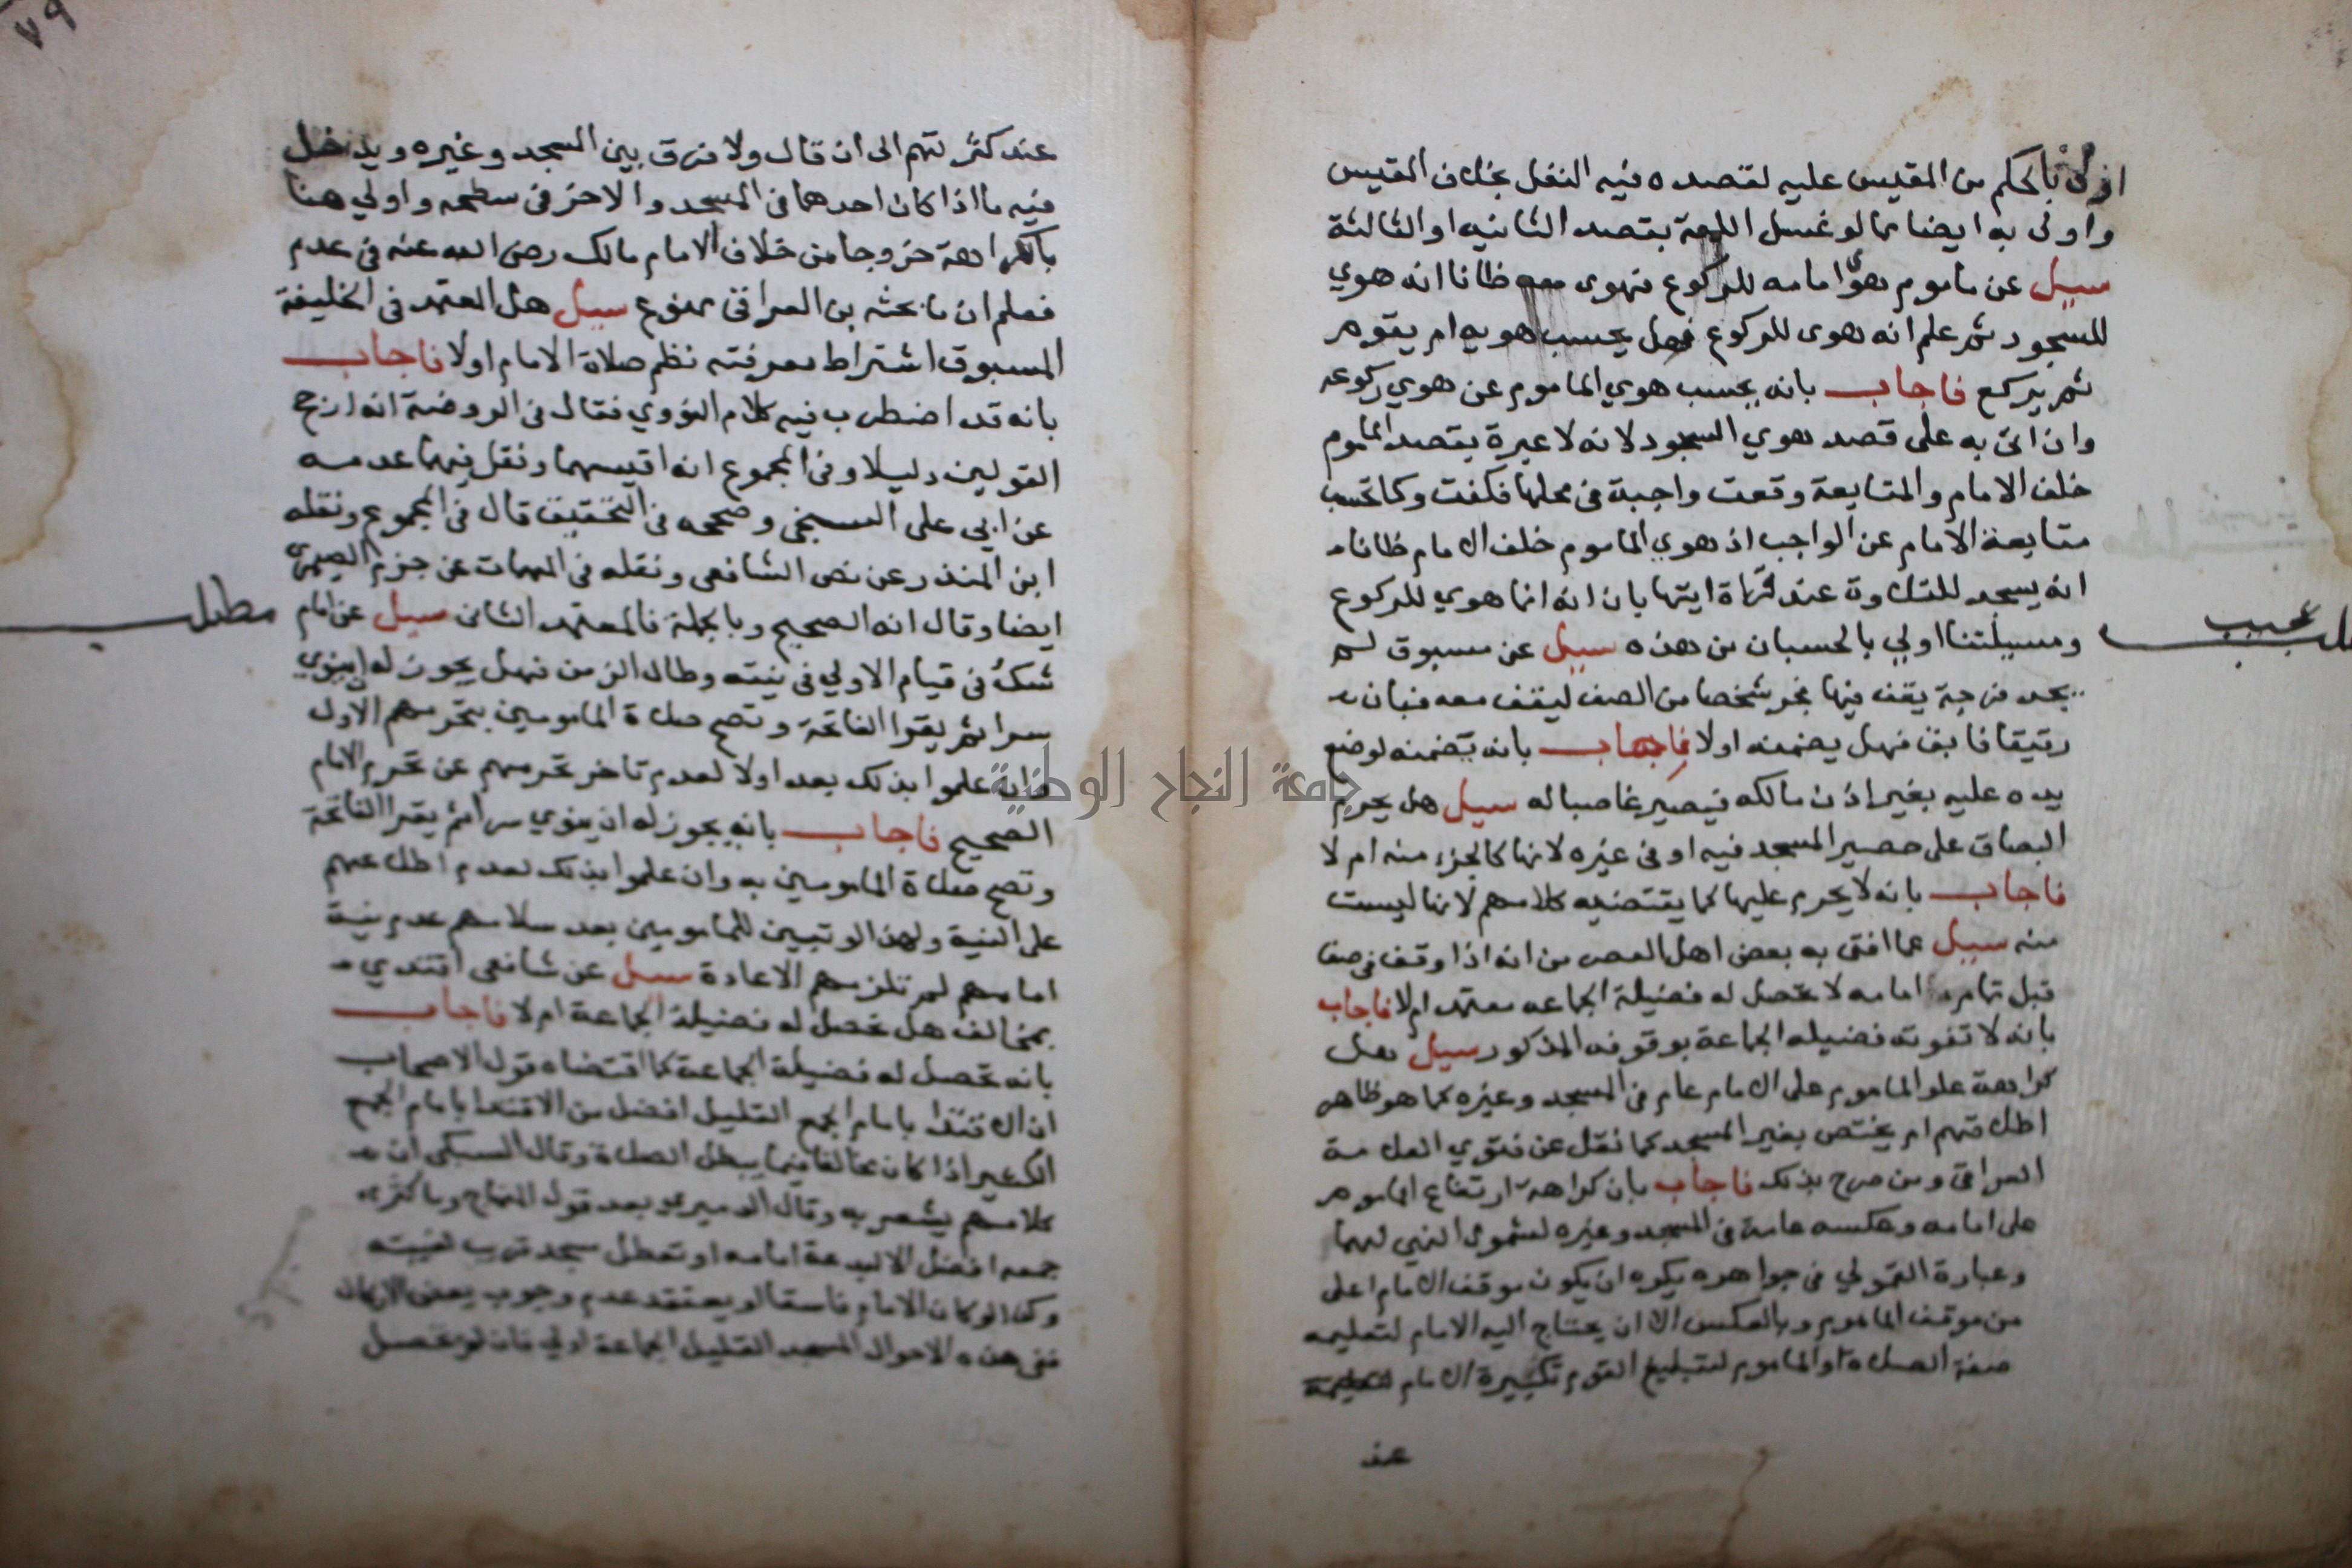 اولى بالحكم من المقيس عليه لقصده فيه النفل بخلاف المقيس
واولى به ايضا مما لو غسل اللمعة بقصد الثانيه او الثالثة
سيل عن ماموم هوى امامه للركوع فهوى معه ظانا انه هوي
للسجود ثم علم انه هوى للركوع فهل يحسب هويه ام يقوم
ثم يركع فاجاب بانه يحسب هوي الماموم عن هوي ركوعه
وان اتى به على قصد هوي السجود لانه لا عبرة بقصد الماموم
خلف الامام والمتابعة وقعت واجبة فى محلها فكفت وكما تحسب
متابعة الامام عن الواجب اذ هوي الماموم خلف الامام ظانا
انه يسجد للتلاوة عند قراة ايتها بان انه انما هوي للركوع
ومسيلتنا اولي بالحسبان من هذه سيل عن مسبوق لم
يجد فرجة يقف فيها فجر شخصا من الصف ليقف معه فبان
رقيقا فابق فهل يضمنه اولا فاجاب بانه يضمنه لوضع
يده عليه بغير اذن مالكه فيصير غاصبا له سيل هل يحرم
البصاق على حصير المسجد فيه او فى غيره لانها كالجزء منه ام لا
فاجاب بانه لا يحرم عليها كما يقتضيه كلامهم لانها ليست
منه سيل عما افتى به بعض اهل العصر من انه اذا وقف فى صف
قبل تمام امامه لا تحصل له فضيلة الجماعه معتمد ام لا فاجاب
بانه لا تفوته فضيله الجماعة بوقوفه المذكور سيل هل
كراهة علو الماموم على الامام عام فى المسجد وغيره كما هو ظاهر
اطلاقهم ام يختص بغير المسجد كما نقل عن فتوي العلامة
العراقى ومن صرح بذلك فاجاب بان كراهة ارتفاع الماموم
على امامه وعكسه عامة فى المسجد وغيره لشمول النهي لهما
وعبارة القمولي فى جواهره يكره ان يكون موقف الامام اعلى
من موقف الماموم وبالعكس الا ان يحتاج اليه الامام لتعليمه
صفة الصلاة او الماموم لتبليغ القوم تكبيرة الامام
عند
عجيب
٧٩
عند كثرتهم الى ان قال ولا فرق بين المسجد وغيره ويدخل
فيه ما اذا كان احدهما فى المسجد والاخر فى سطحه واولي هنا
بالكراهة خروجا من خلاف الامام مالك رضى الله عنه فى عدم
فعلم ان ما بحثه بن العراقى ممنوع سيل هل المعتمد فى الخليفة
المسبوق اشتراط معرفته نظم صلاة الامام اولا فاجاب
بانه قد اضطرب فيه كلام النووي فقال فى الروضة انه ارجح
القولين دليلا وفى المجموع انه اقيسهما ونقل فيهما عدمه
عن ابي على السنجى وصححه فى التحقيق قال فى المجموع ونقله
ابن المنذر عن نص الشافعى ونقله فى المهمات عن جزم الصيمرى
ايضا وقال انه الصحيح وبالجملة فالمعتمد الثانى سيل عن امام
شك فى قيام الاولي فى نيته وطال الزمن فهل يجوز له ان ينوي
سرا ثم يقرا الفاتحة وتصح صلاة المامومين بتحرمهم الاول
وان علموا بذلك بعد اولا لعدم تاخر تحرمهم عن تحرم الامام
الصحيح فاجاب بانه يجوز له ان ينوي سرا ثم يقرا الفاتحة
وتصح صلاة المامومين به وان علموا بذلك لعدم اطلاعهم
على النية ولهذا لو تبين للمامومين بعد سلامهم عدم نية
امامهم لم تلزمهم الاعادة سيل عن شافعى اقتدي
بمخالف هل تحصل له فضيلة الجماعة ام لا فاجاب
بانه تحصل له فضيلة الجماعة كما اقتضاه قول الاصحاب
ان الاقتدا بامام الجمع القليل افضل من الاقتدا بامام الجمع
الكثير اذا كان مخالفا فيما يبطل الصلاة وقال السبكى ان
كلامهم يشعر به وقال الدميرى بعد قول المنهاج وما كثر
جمعه افضل الا لبدعة امامه او تعطل مسجد قريب لغيبته
وكذا لو كان الامام فاسقا او يعتقد عدم وجوب بعض الاركان
ففى هذه الاحوال المسجد القليل الجماعة اولي فان لم تحصل
مطلب
جامعة النجاح الوطنية